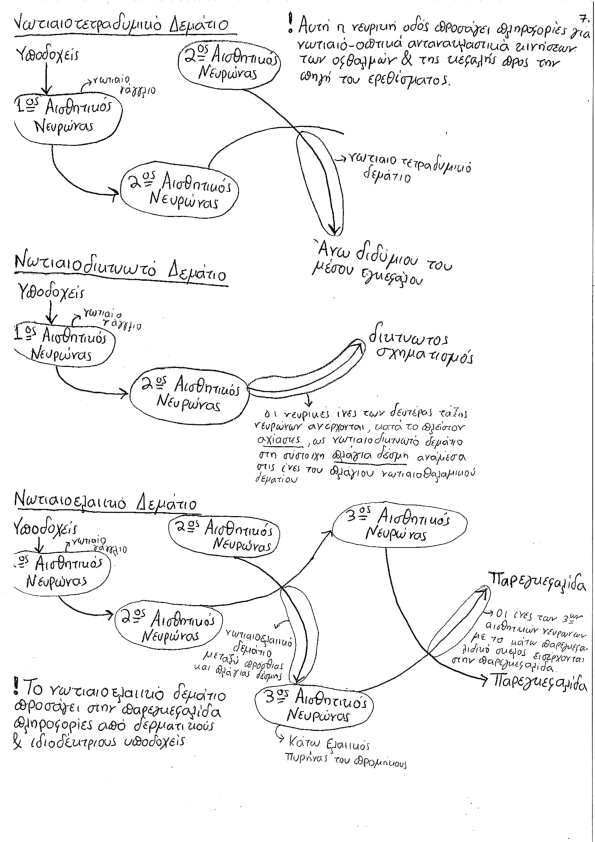 7.
Νωτιαιοτετραδυμικό Δεμάτιο
Υποδοχείς
νωτιαίο
γάγγλιο
1ος Αισθητικός
Νευρώνας
2ος Αισθητικός
Νευρώνας
2ος Αισθητικός
Νευρώνας
! Αυτή η νευρική οδός προσάγει πληροφορίες για
νωτιαιό-οπτικά αντανακλαστικά κινήσεων
των οφθαλμών & της κεφαλής προς την
πηγή του ερεθίσματος.
νωτιαιο τετραδυμικό
δεμάτιο
Άνω διδύμιου του
μέσου εγκεφάλου
Νωτιαιοδικτυωτό Δεμάτιο
Υποδοχείς
νωτιαίο
γάγγλιο
1ος Αισθητικός
Νευρώνας
2ος Αισθητικός
Νευρώνας
δικτυωτος
σχηματισμός
οι νευρικές ίνες των δευτέρας τάξης
νευρώνων ανέρχονται, κατά το πλείστον
αχίαστες, ως νωτιαιοδικτυωτό δεμάτιο
στη σύστοιχη πλάγια δέσμη ανάμεσα
στις ίνες του πλάγιου νωτιαιοθαλαμικού
δεματίου
Νωτιαιοελαιικό Δεμάτιο
Υποδοχείς
νωτιαίο
γάγγλιο
ος Αισθητικός
Νευρώνας
2ος Αισθητικός
Νευρώνας
2ος Αισθητικός
Νευρώνας
3ος Αισθητικός
Νευρώνας
νωτιαιοελαιικό
δεμάτιο
μεταξύ πρόσθιας
και πλάγιας δέσμης
3ος Αισθητικός
Νευρώνας
Κάτω ελαιικός
πυρήνας του προμήκους
Παρεγκεφαλίδα
Οι ίνες των 3ων
αισθητικών νευρώνων
με το κάτω παρεγκεφα-
λιδικό σκέλος εισέρχονται
στην παρεγκεφαλίδα
Παρεγκεφαλίδα
! Το νωτιαιοελαιικό δεμάτιο
προσάγει στην παρεγκεφαλίδα
πληροφορίες από δερματικούς
& ιδιοδέκτριους υποδοχείς